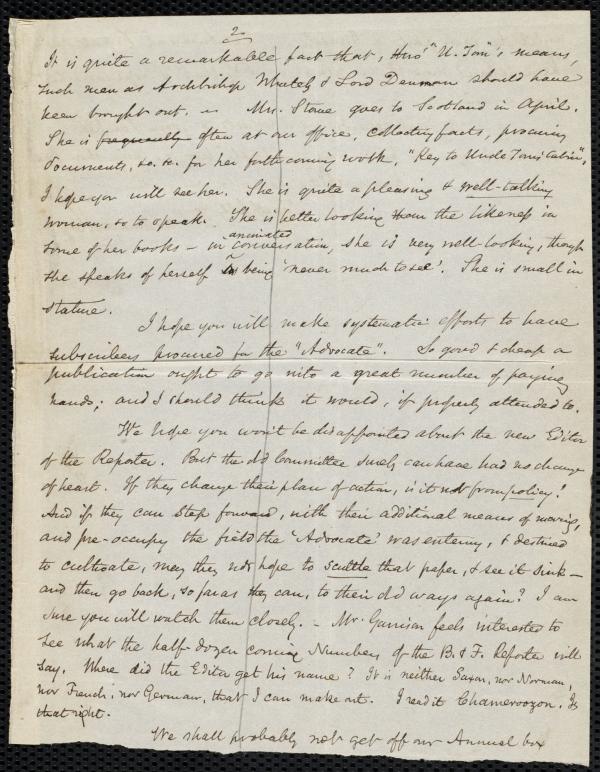 2
It is quite a remarkable fact that, thro' "U. Tom's means,
such men as Archbishop Whately & Lord Denman should have
been brought out. — Mrs. Stowe goes to Scotland in April.
She is frequently often at our office, collecting facts, procuring
documents, &c. &c. for her forthcoming work, "Key to Uncle Tom's Cabin",
I hope you will see her. She is quite a pleasing & well-talking
woman, so to speak. She is better looking than the likeness in
some of her books — in animated conversation, she is very well-looking, though
she speaks of herself as being 'never much to see'. She is small in
stature.
I hope you will make systematic efforts to have
subscribers procured for the "Advocate". So good & cheap a
publication ought to go into a great number of paying
hands; and I should think it would, if properly attended to.
We hope you won't be disappointed about the new Editor
of the Reporter. But the old Committee surely can have had no change
of heart. If they change their plan of action, is it not from policy?
And if they can step forward, with their additional means of moving,
and pre-occupy the field the 'Advocate' was entering, & destined
to cultivate, may they not hope to scuttle that paper, & see it sink —
and then go back, so far as they can, to their old ways again? I am
sure you will watch them closely. — Mr. Garrison feels interested to
see what the half-dozen coming Numbers of the B. & F. Reporter will
say. Where did the Editor get his name? It is neither Saxon, nor Norman,
nor French, nor German, that I can make out. I read it Chamerovzon. Is
that right.
We shall probably not get off our Annual box